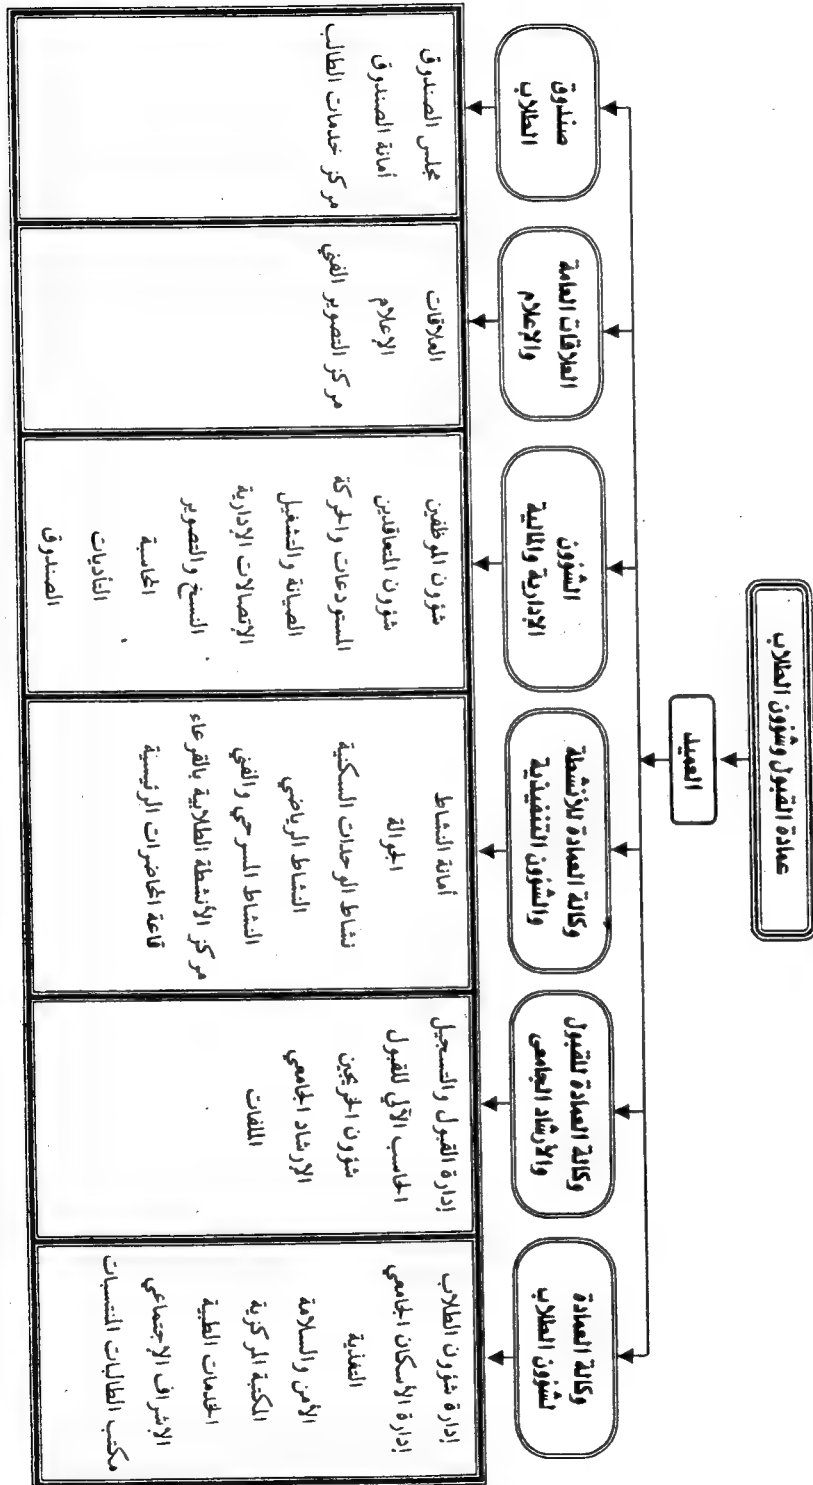 عمادة القبول وشؤون الطلاب
العميد
وكالة العمادة
لشؤون الطلاب
وكالة العمادة للقبول
والأرشاد الجامعى
وكالة العمادة للأنشطة
والشؤون التنفيذية
الشؤون
الإدارية والمالية
العلاقات العامة
والإعلام
صندوق
الطلاب
إدارة شؤون الطلاب
إدارة الأسكان الجامعي
التغذية
الأمن والسلامة
المكتبة المركزية
الخدمات الطبية
الإشراف الإجتماعي
مكتب الطالبات المنتسبات
إدارة القبول والتسجيل
الحاسب الآلي للقبول
شؤون الخريجين
الإرشاد الجامعي
الملفات
أمانة النشاط
الجوالة
نشاط الوحدات السكنية
النشاط الرياضي
النشاط المسرحي والفني
مركز الأنشطة الطلابية بالقرعاء
قاعة المحاضرات الرئيسية
شؤون الموظفين
شؤون المتعاقدين
المستودعات والحركة
الصيانة والتشغيل
الإتصالات الإدارية
النسخ والتصوير
المحاسبة
التأديات
الصندوق
العلاقات
الإعلام
مركز التصوير الفني
مجلس الصندوق
أمانة الصندوق
مركز خدمات الطالب